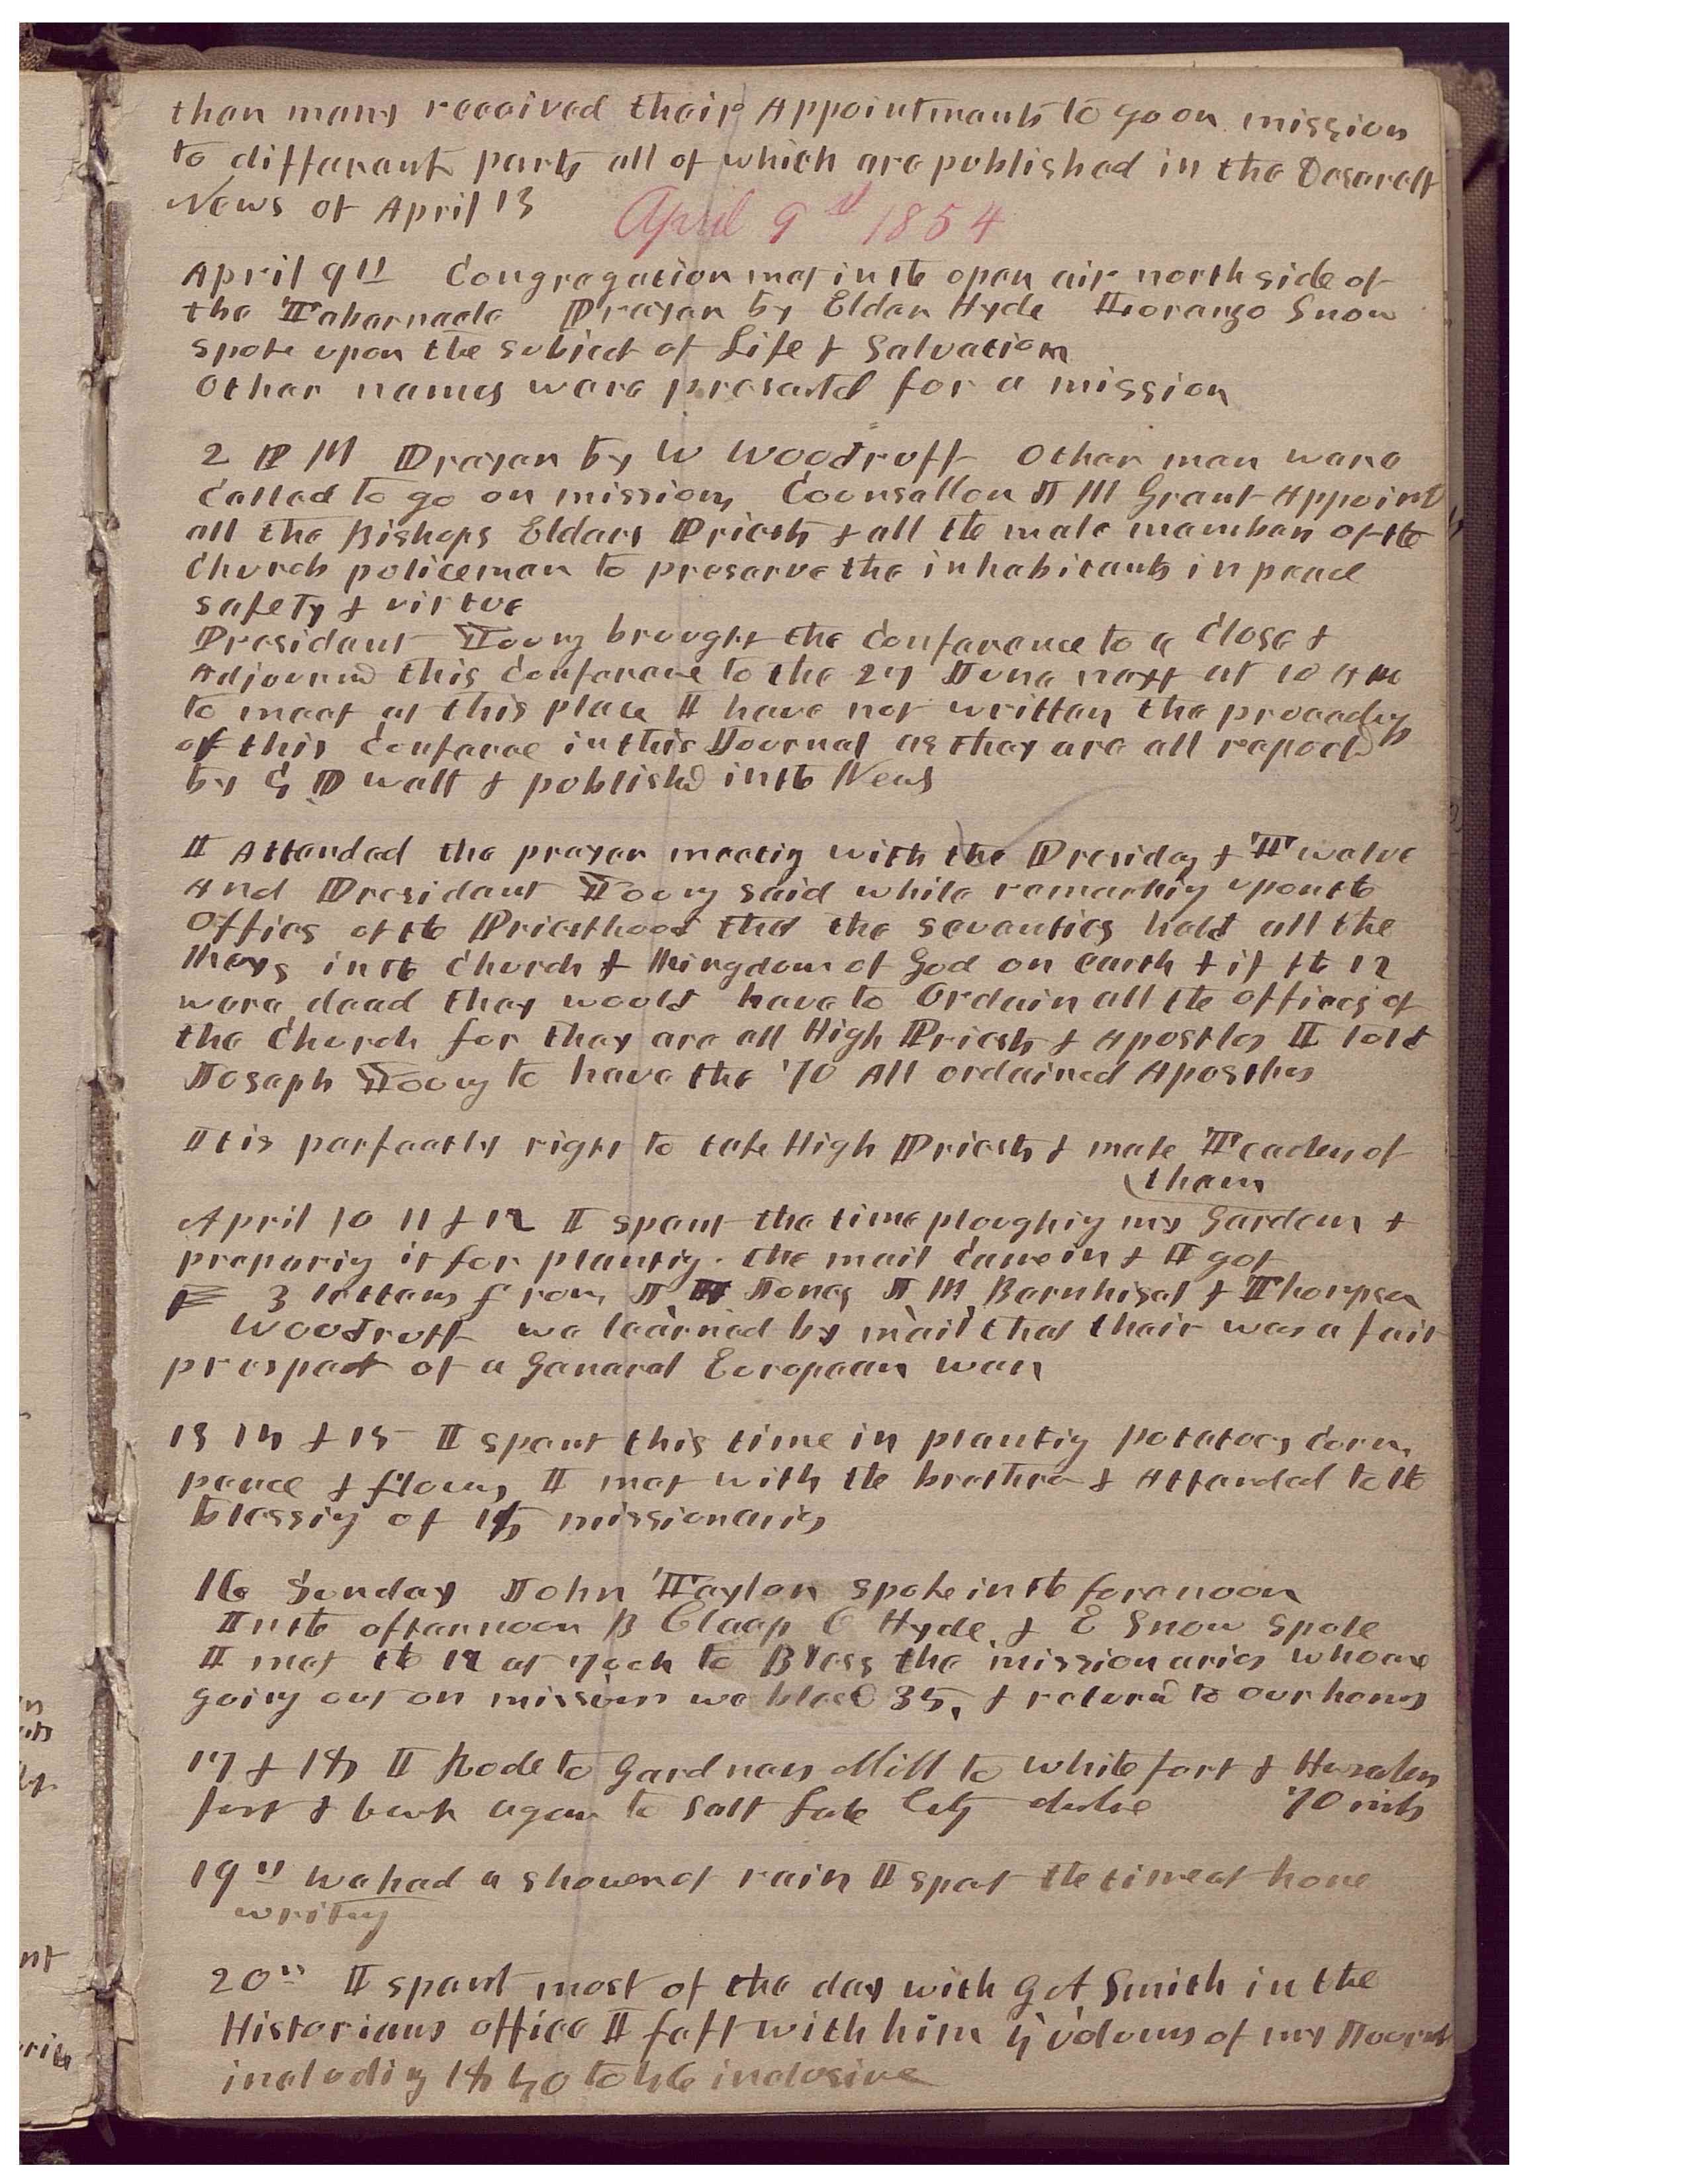 then many received their Appointments to go on mission
to different parts all of which are published in the Deserett
News of April 13
April 9th 1854
April 9th Congregation met in the open air north side of
the Tabernacle Prayer by Elder Hyde Lorenzo Snow
spoke upon the subject of Life & Salvation
Other names were presented for a mission
2 P M Prayer by W Woodruff Other men were
Called to go on missions Counsellor J M Grant Appoint
all the Bishops Elders Priests & all the male members of the
Church policemen to preserve the inhabitants in peace
safety & virtue
President Young brought the Conference to a Close &
Adjourned this Conference to the 27 June next at 10 am
to meet at this place I have not written the proceedings
of this Conference in this Journal as they are all reported
by G D Watt & published in the News
I Attended the prayer meeting with the Presidency & Twelve
And President Young said while remarking upon the
Offices of the Priesthood that the seventies held all the
Keys in the Church & Kingdom of God on earth & if the 12
were dead they would have to Ordain all the offices of
the Church for they are all High Priests & Apostles I told
Joseph Young to have the 70 All ordained Apostles
It is perfectly right to take High Priests & make Teachers of
them
April 10 11 & 12 I spent the time ploughing my Garden &
preparing it for planting. the mail came in & I got
3 letters from J Jones J M Bernhisel & Thompson
Woodruff we learned by mail that their was a fair
prospect of a General European war
13 14 & 15 I spent this time in planting potatoes Corn
peace & flours I met with the brethren & Attended to the
blessing of 15 missionaries
16 Sunday John Taylor spoke in the forenoon
In the afternoon B Claap O Hyde & E Snow spoke
I met the 12 at 7 oclk to Bless the missionaries who are
going out on missions we blessed 35, & returned to our homes
17 & 18 I Rode to Gardners Mill to white fort &
fort & back again to Salt Lake City distance 70 miles
19th We had a shower of rain I spent the time at home
writing
20th I spent most of the day with G A Smith in the
Historians office I left with him 4 volums of my Journal
including 1840 to 46 inclosive